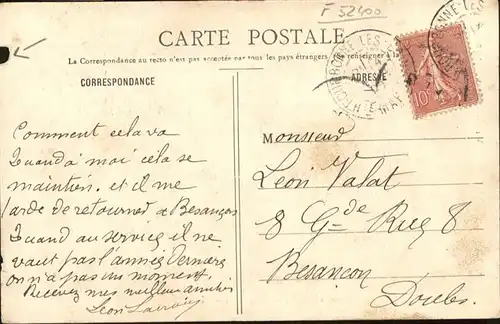 F 52400
CARTE POSTALE
La Correspondance au recto n'est pas acceptée par tous les pays étrangers. (Se renseigner à la
CORRESPONDANCE
ADRESSE
Comment cela va
Quand à moi cela se
maintien. et il me
tarde de retourner a Besançon
Quand au service il ne
vaut pas l'année Dernière
on n'a pas un moment
Recevez mes meilleures amitiés
Léon
Monsieur
Léon Valat
8 Gde Rue 8
Besançon
Doubs.
10